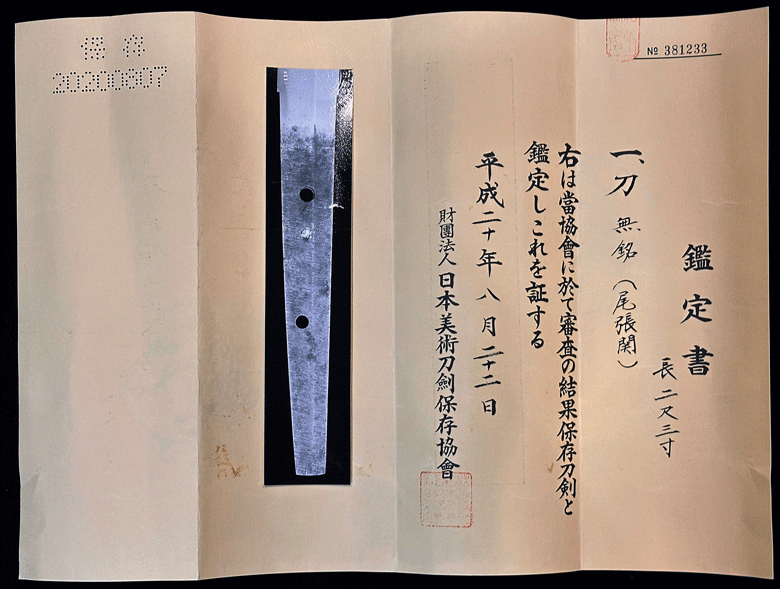 № 381233
鑑定書
一、刀 無銘(尾張関)
長二尺三寸
右は當協會に於て審査の結果保存刀剣と
鑑定しこれを証する
平成二十年八月二十二日
財團法人日本美術刀劍保存協會
保存
20200807